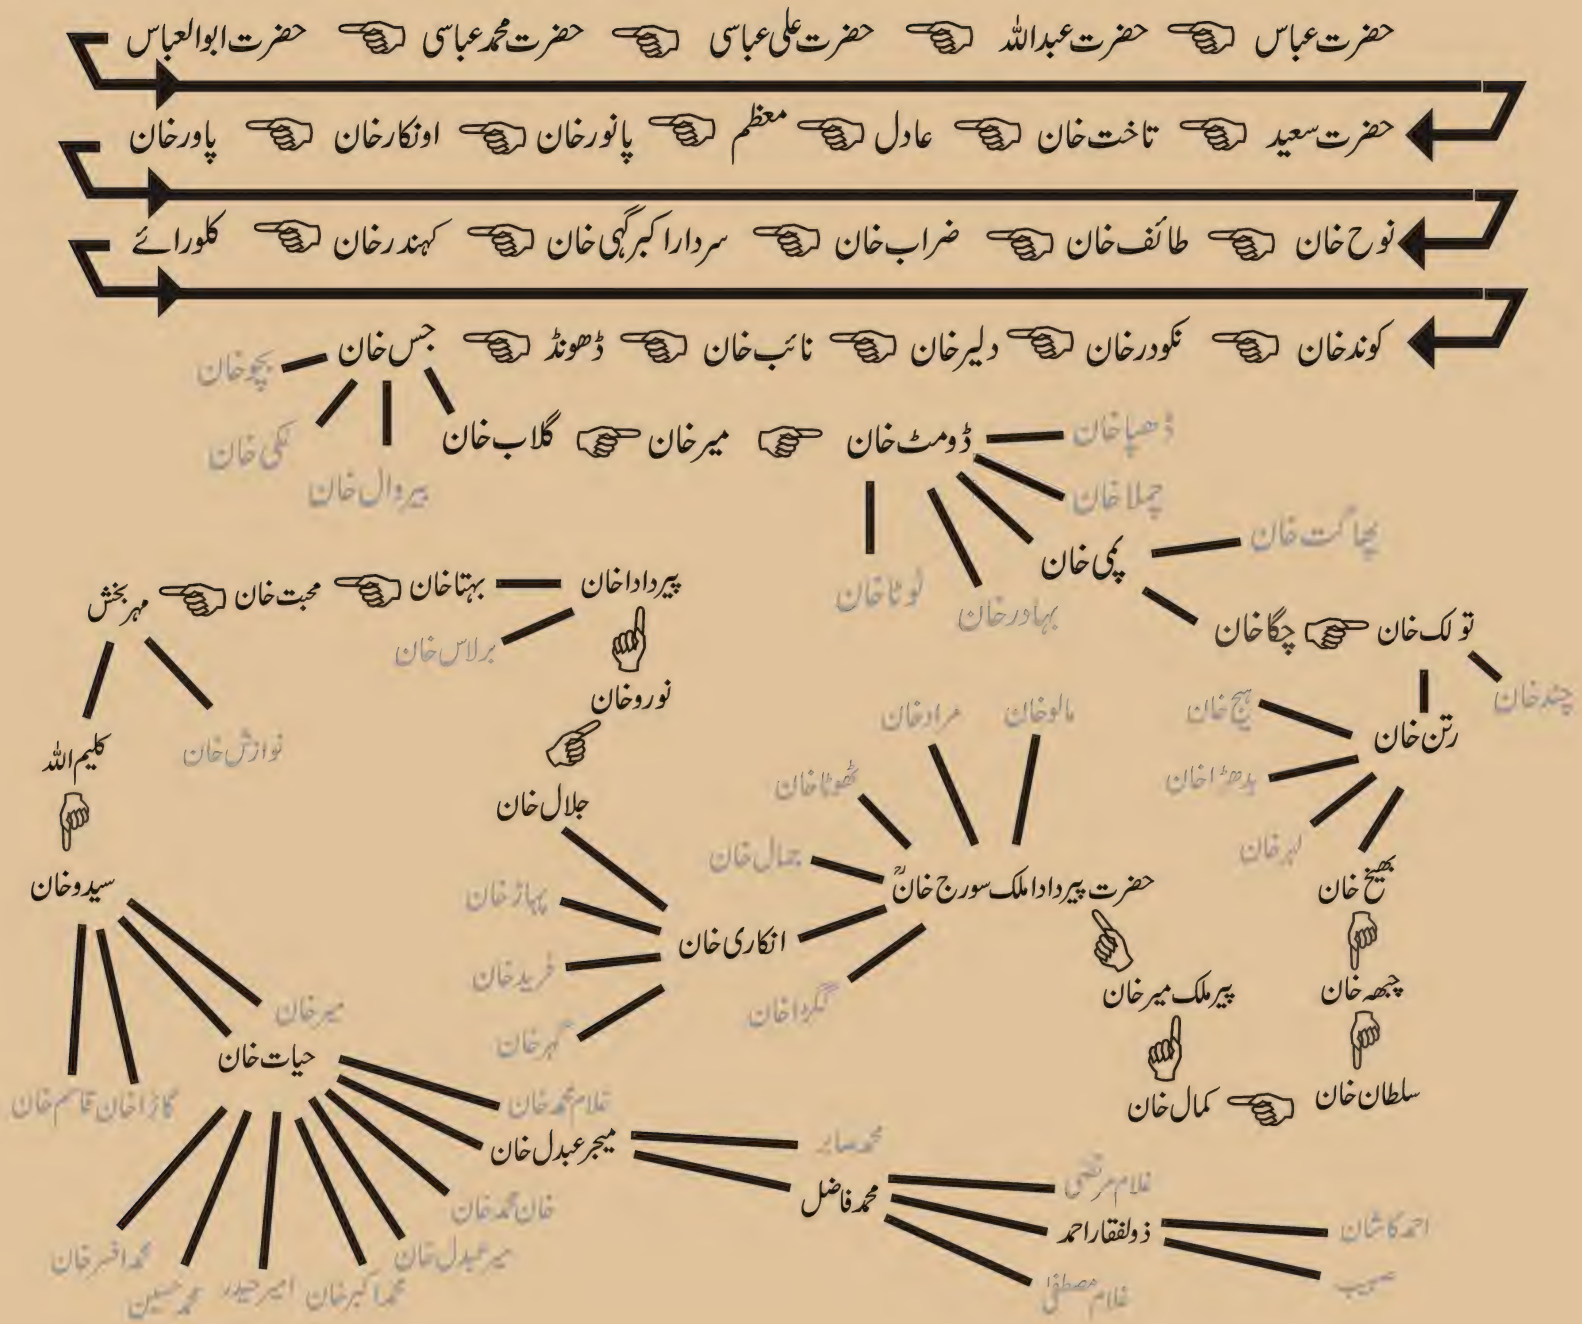 حضرت عباس حضرت عبداللہ حضرت علی عباسی حضرت محمد عباسی حضرت ابوالعباس
حضرت سعید تاخت خان عادل معظم پانور خان اونکار خان پاور خان
نوح خان طائف خان ضراب خان سردار اکبر گہی خان کہندر خان کلورائے
کوند خان نکودر خان دلیر خان نائب خان ڈھونڈ جس خان
بچو خان
لکی خان
بیروال خان
گلاب خان میر خان ڈومٹ خان
ڈھپا خان
چملا خان
پمی خان
بہادر خان
لوٹا خان
پھاگت خان
چگا خان تولک خان
چند خان
رتن خان
ہیج خان
بدھڑا خان
لہر خان
بھیخ خان
چبھہ خان
سلطان خان کمال خان
پیر ملک میر خان
حضرت پیر دادا ملک سورج خانؒ
مالو خان
مراد خان
ٹھوٹا خان
جمال خان
انکاری خان
لگڑا خان
جلال خان
پہاڑ خان
فرید خان
گہر خان
نورو خان
پیر دادا خان
بہتا خان محبت خان مہر بخش
برلاس خان
نوازش خان
کلیم اللہ
سیدو خان
میر خان
حیات خان
گاڑا خان قاسم خان
غلام محمد خان
میجر عبدل خان
خان محمد خان
میر عبدل خان
محمد اکبر خان
امیر حیدر
محمد حسین
محمد افسر خان
محمد صابر
محمد فاضل
غلام مرتضیٰ
ذولفقار احمد
غلام مصطفیٰ
احمد کاشان
صہیب